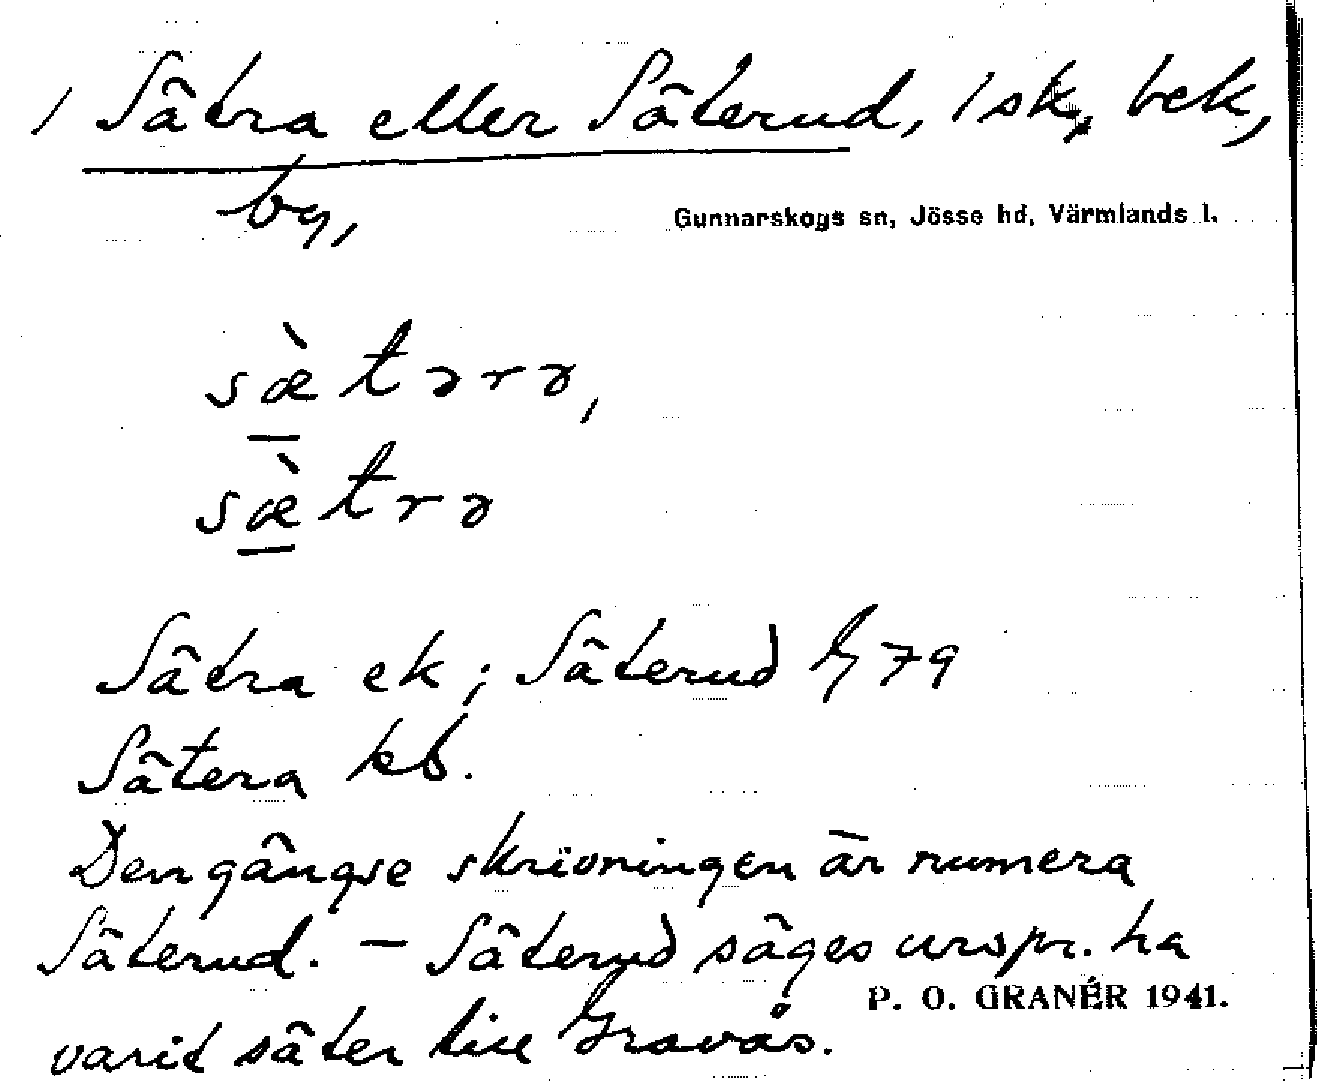 1 Sätra eller Säterud, 1 sk, bek,
by,
Gunnarskogs sn, Jösse hd, Värmlands l.
sæ̀tərə,
sæ̀trə
Sätra ek; Säterud 79
Sätera kb.
Den gängse skrivningen är numera
Säterud. — Säterud säges urspr. ha
P. O. GRANÉR 1941.
varit säter till Gravås.